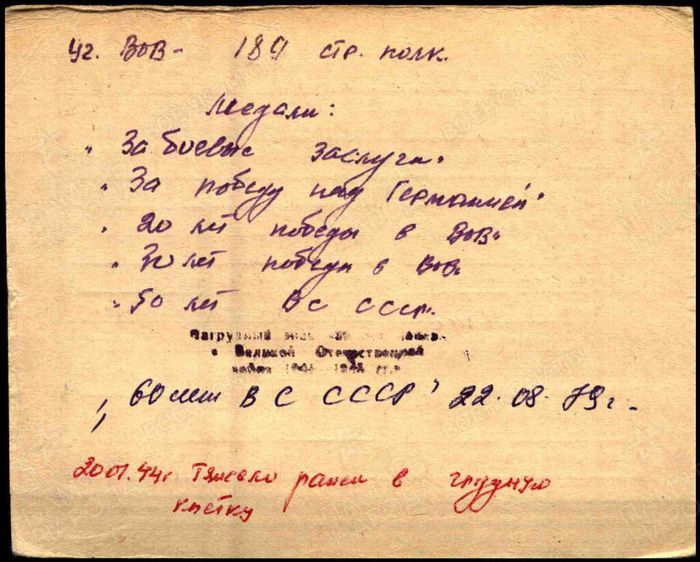 Уч. ВОВ - 189 стр. полк.
Медали:
"За боевые заслуги"
"За победу над Германией"
"20 лет победы в ВОВ"
"30 лет победы в ВОВ"
"50 лет ВС СССР"
Нагрудный знак
Великой Отечественной
войны 1941-1945 гг."
"60 лет ВС СССР" 22.08.79г.
20.01.44г тяжело ранен в грудную
клетку